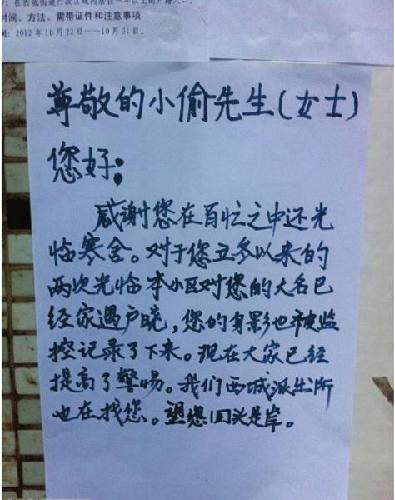 时间、方法、需带证件和注意事项
间：2012年10月22日——10月31日。
尊敬的小偷先生(女士)
您好：
感谢您在百忙之中还光
临寒舍。对于您立冬以来的
两次光临本小区对您的大名已
经家遇户晓，您的身影也被监
控记录了下来。现在大家已经
提高了警惕。我们西城派出所
也在找您。望您回头是岸。